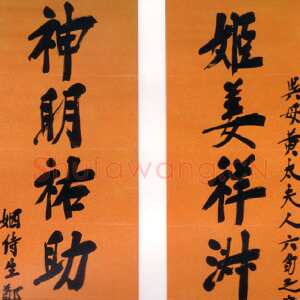 吳母黃太夫人六旬
姬姜祥淑
神明祐助
姻侍生鄭
Shufawang.CN